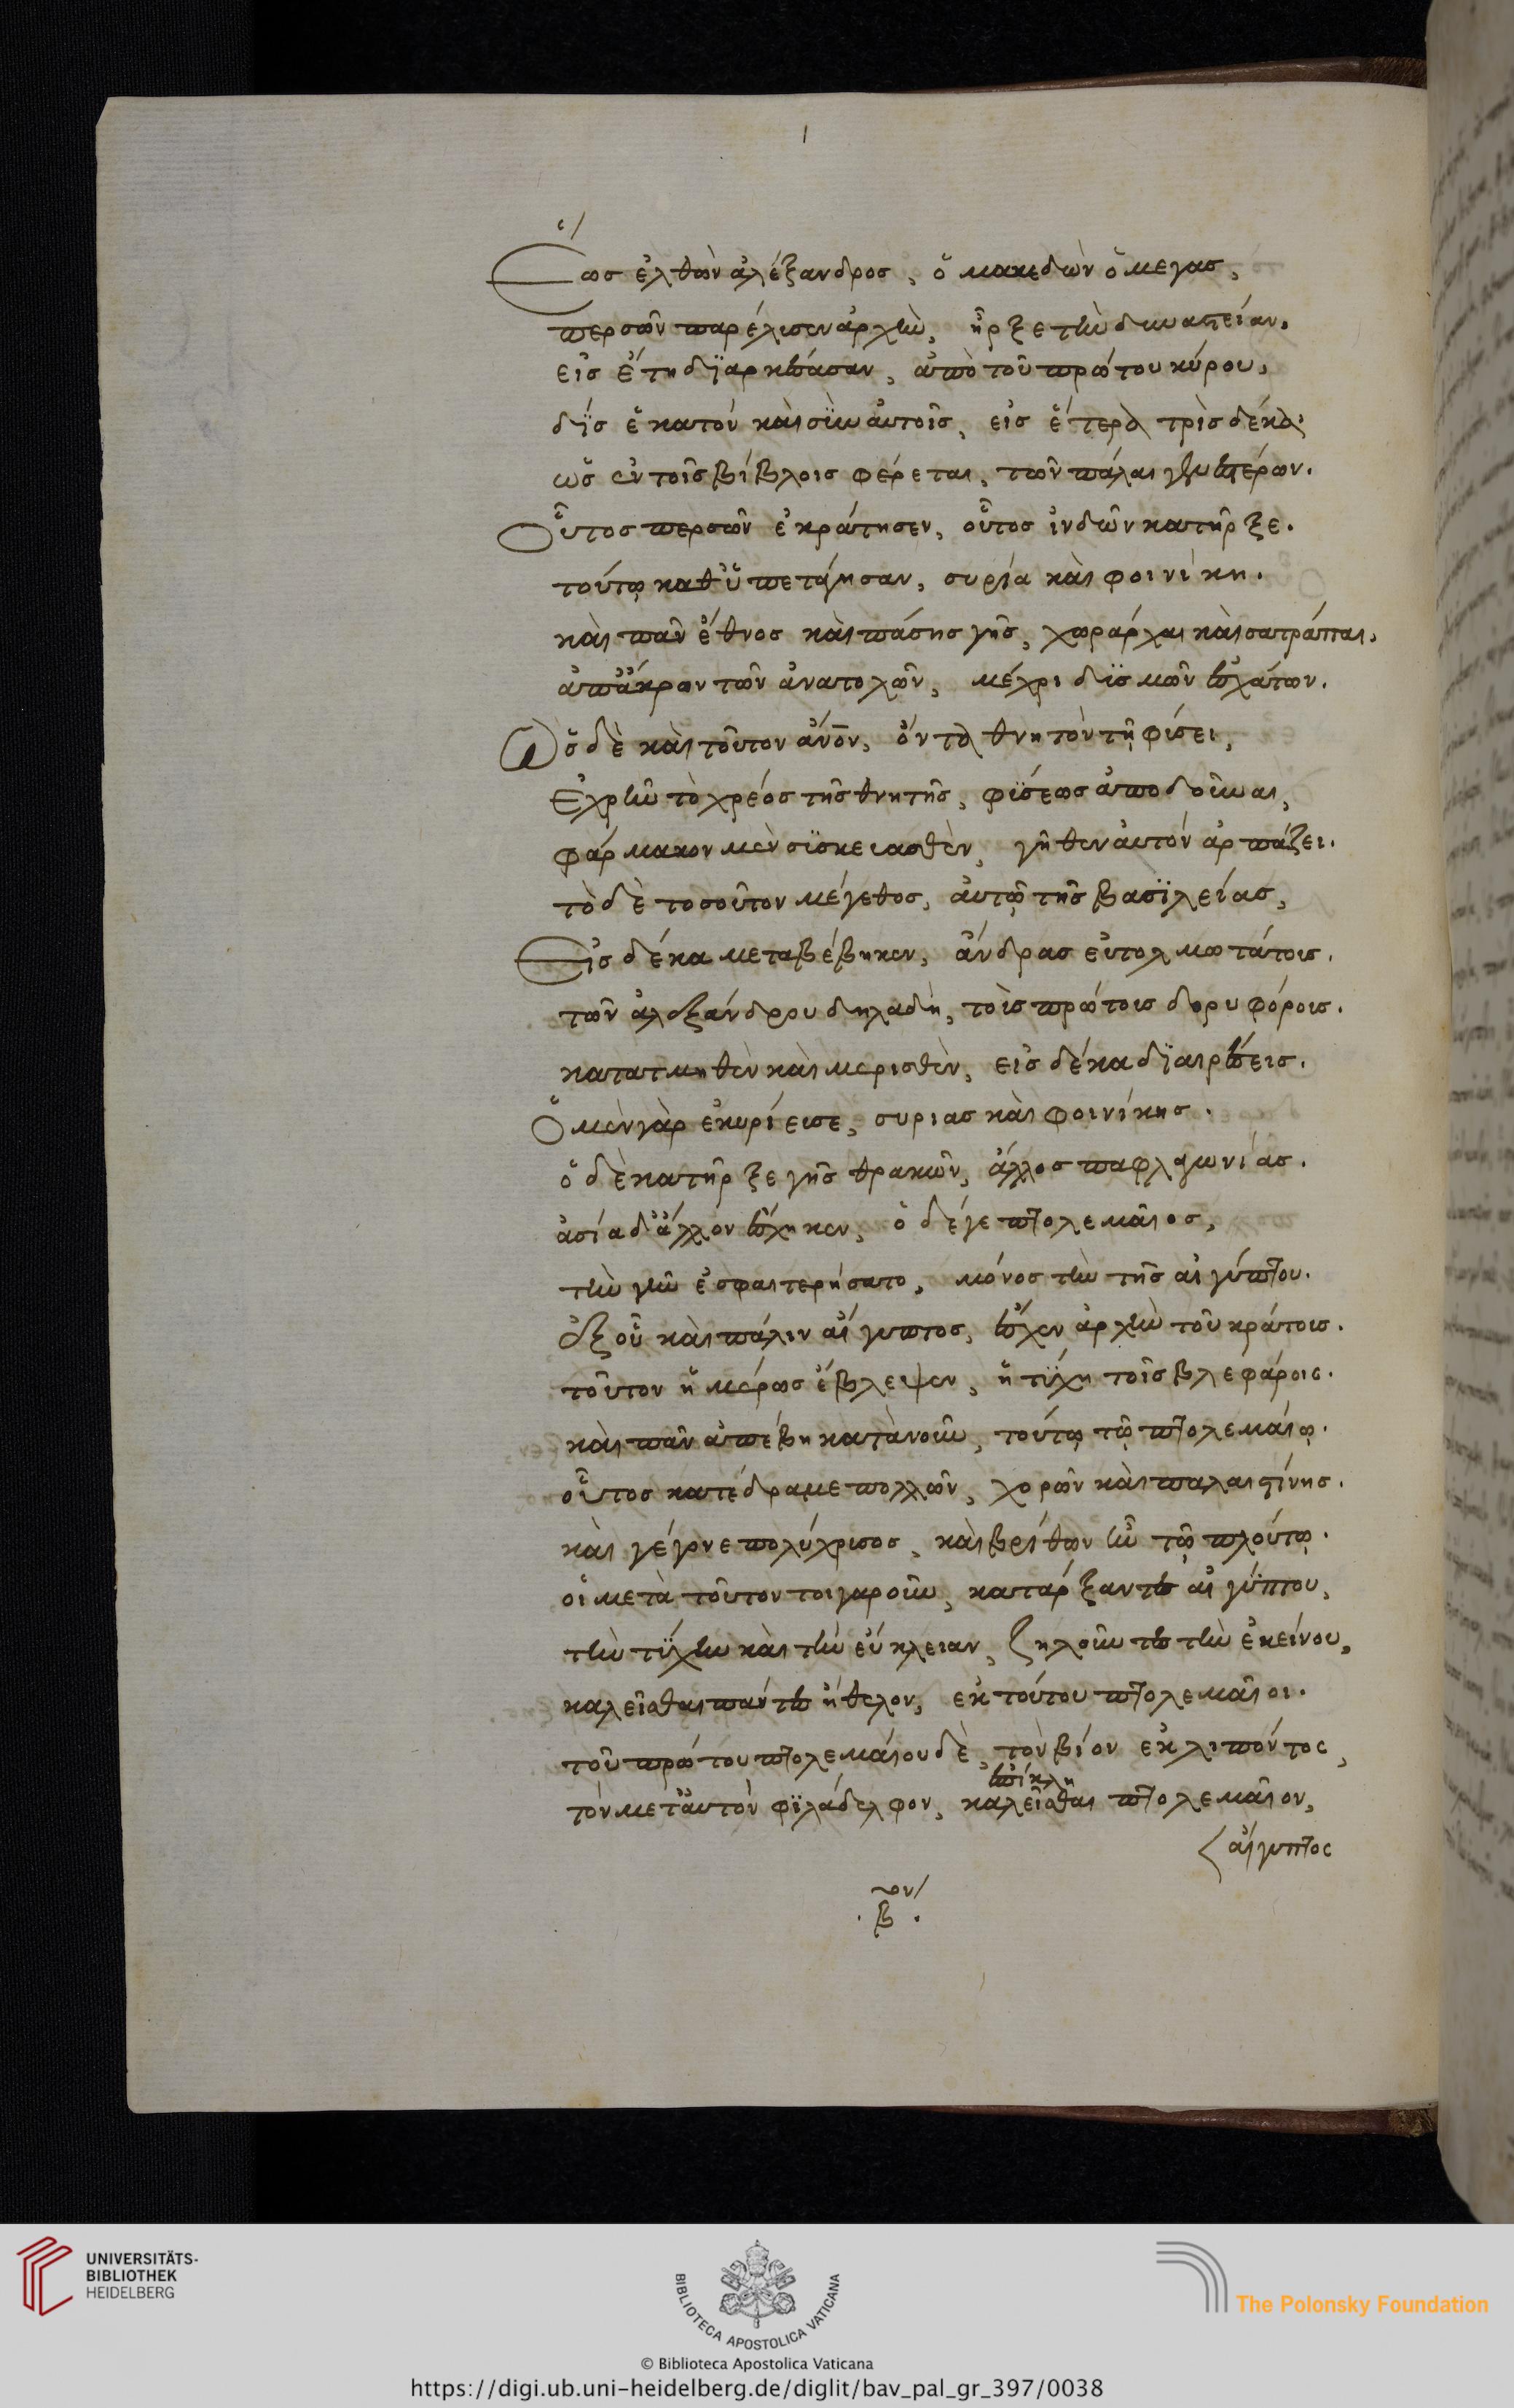 Ἕως ἐλθὼν ἀλέξανδρος, ὁ μακεδὼν ὁ μεγας,
περσῶν παρέλυσεν ἀρχὴν, ἦρξε τὴν δυναστείαν.
εἰς ἔτη δϊαρκέσασαν, ἀπὸ τοῦ πρώτου κύρου,
δϊς ἑκατόν καὶ σὺν αὐτοῖς, εἰς ἕτερα τρὶς δέκα.
ὡς ἐν τοῖς βίβλοις φέρεται, τῶν πάλαι
Οὗτος περσῶν ἐκράτησεν, οὗτος ἰνδῶν κατῆρξε.
τούτῳ καθ' ὑπετάγησαν, συρία καὶ φοινίκη.
καὶ πᾶν ἔθνος καὶ πάσης γῆς, χωράρχαι καὶ σατράπαι,
ἀπ' ἄκρων τῶν ἀνατολῶν, μέχρι δϋσμῶν ἐσχάτων.
Ὡς δὲ καὶ τοῦτον ἄνον, ὄντα θνητὸν τῇ φύσει,
Ἐχρῆν τὸ χρέος τῆς θνητῆς, φϋσέως ἀποδοῦναι,
φάρμακον μὲν σϋσκευασθὲν, γῆθεν αὐτόν ἁρπάζει.
τὸ δὲ τοσοῦτον μέγεθος, αὐτῷ τῆς βασϊλείας,
Εἰς δέκα μεταβέβηκεν, ἄνδρας εὐτολμωτάτους.
τῶν ἀλεξάνδρου δηλαδὴ, τοὶς πρώτοις δορυφόροις.
κατατμηθὲν καὶ μερισθὲν, εἰς δέκα δϊαιρέσεις.
Ὁ μὲν γὰρ ἐκυρίευσε, συριας καὶ φοινίκης.
ὁ δὲ κατῆρξε γῆς θρακῶν, ἄλλος παφλαγωνίας.
ἀσία δ' ἄλλον ἔσχηκεν, ὁ δέγε πτολεμαῖος,
τὴν γῆν ἐσφαιτερήσατο, μόνος τὴν τῆς αἰγύπτου.
ἐξ οὗ καὶ πάλιν αἴγυπτος, ἔσχεν ἀρχὴν τοῦ κράτους.
τοῦτον ἡμέρως ἔβλεψεν, ἡ τϋχη τοῖς βλεφάροις.
καὶ πᾶν ἀπέβη κατὰνοῦν, τούτῳ τῷ πτολεμαίῳ.
οὗτος κατέδραμε πολλῶν, χορῶν καὶ παλαιστίνης.
καὶ γέγονε πολύχρυσος, καὶ βρίθων ἦν τῷ πλούτῳ.
οἱ μετὰ τοῦτον τοιγαροῦν, κατάρξαντες αἰγύπτου,
τὴν τϋχην καὶ τὴν εὔκλειαν, ζηλοῦντες τὴν ἐκείνου,
καλεῖσθαι πάντες ἤθελον, ἐκ τούτου πτολεμαῖοι.
τοῦ πρώτου πτολεμαίου δὲ, τὸν βίον ἐκλιπόντος,
ἐπίκλη
τόν μετ' αὐτὸν φϊλάδελφον, καλεῖσθαι πτολεμαῖον,
αἴγυπτος
ον
.β.
UNIVERSITÄTS-
BIBLIOTHEK
HEIDELBERG
BIBLIOTECA APOSTOLICA VATICANA
The Polonsky Foundation
© Biblioteca Apostolica Vaticana
https://digi.ub.uni-heidelberg.de/diglit/bav_pal_gr_397/0038